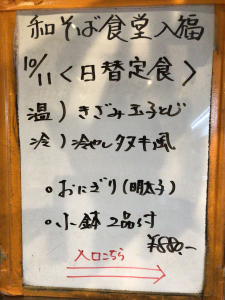 和そば食堂入福
10/11 <日替定食>
温) きざみ玉子とじ
冷) 冷やしタヌキ風
○ おにぎり(明太子)
○ 小鉢 2品付
¥880.-
入口こちら